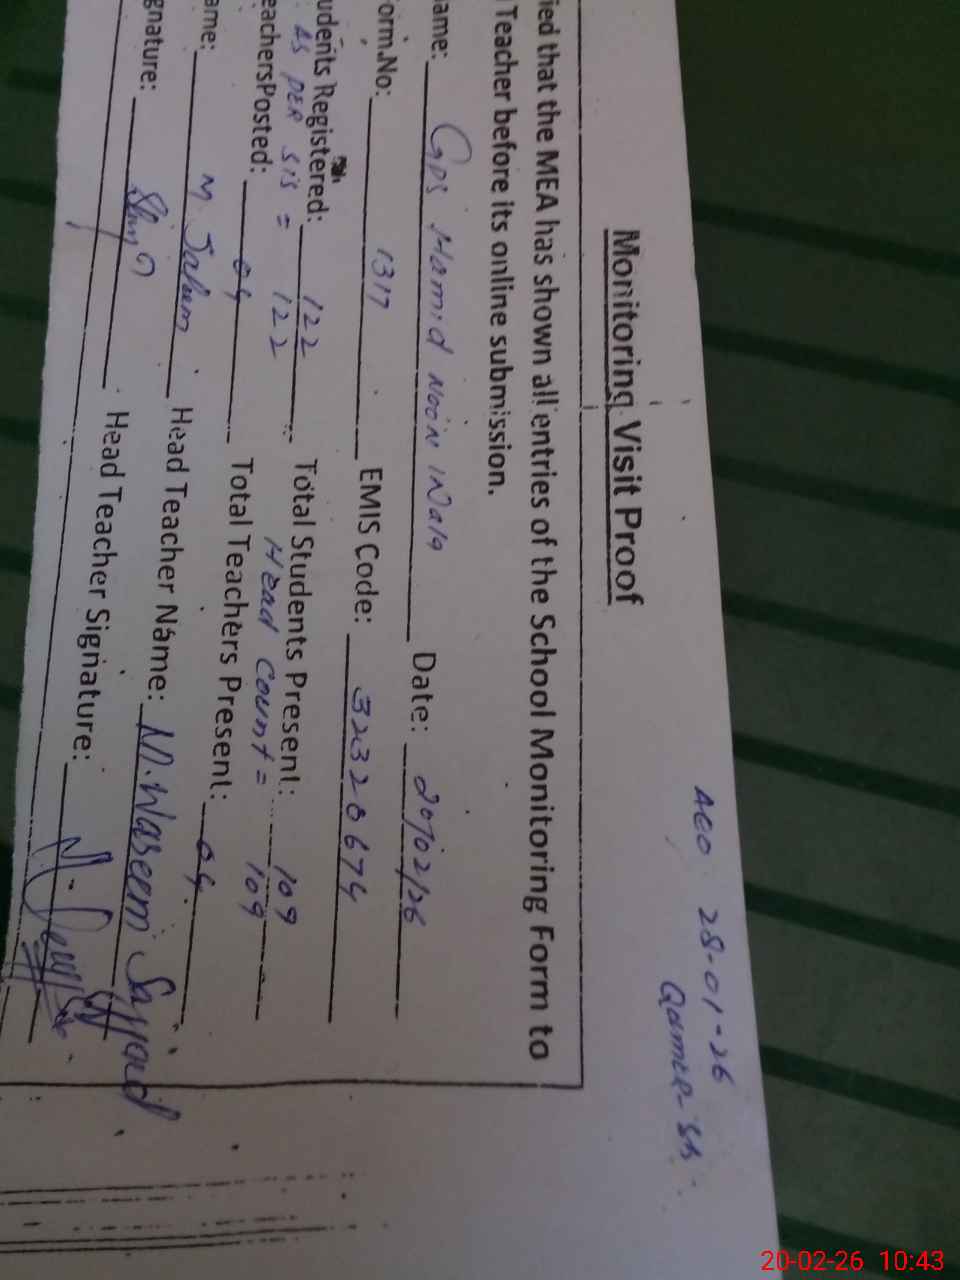 AEO 28-01-26
Qamer-Sb.
Monitoring Visit Proof
ied that the MEA has shown all entries of the School Monitoring Form to
Teacher before its online submission.
ame: GPS Hamid Noon Wala Date: 20/02/26
orm.No: 1317 EMIS Code: 32320674
udents Registered: 122 Total Students Present: 109
AS PER SIS = 122 Head Count = 109
eachersPosted: 04 Total Teachers Present: 04
ame: M. Saleem Head Teacher Name: M. Waseem Sajjad
gnature: Head Teacher Signature:
20-02-26 10:43